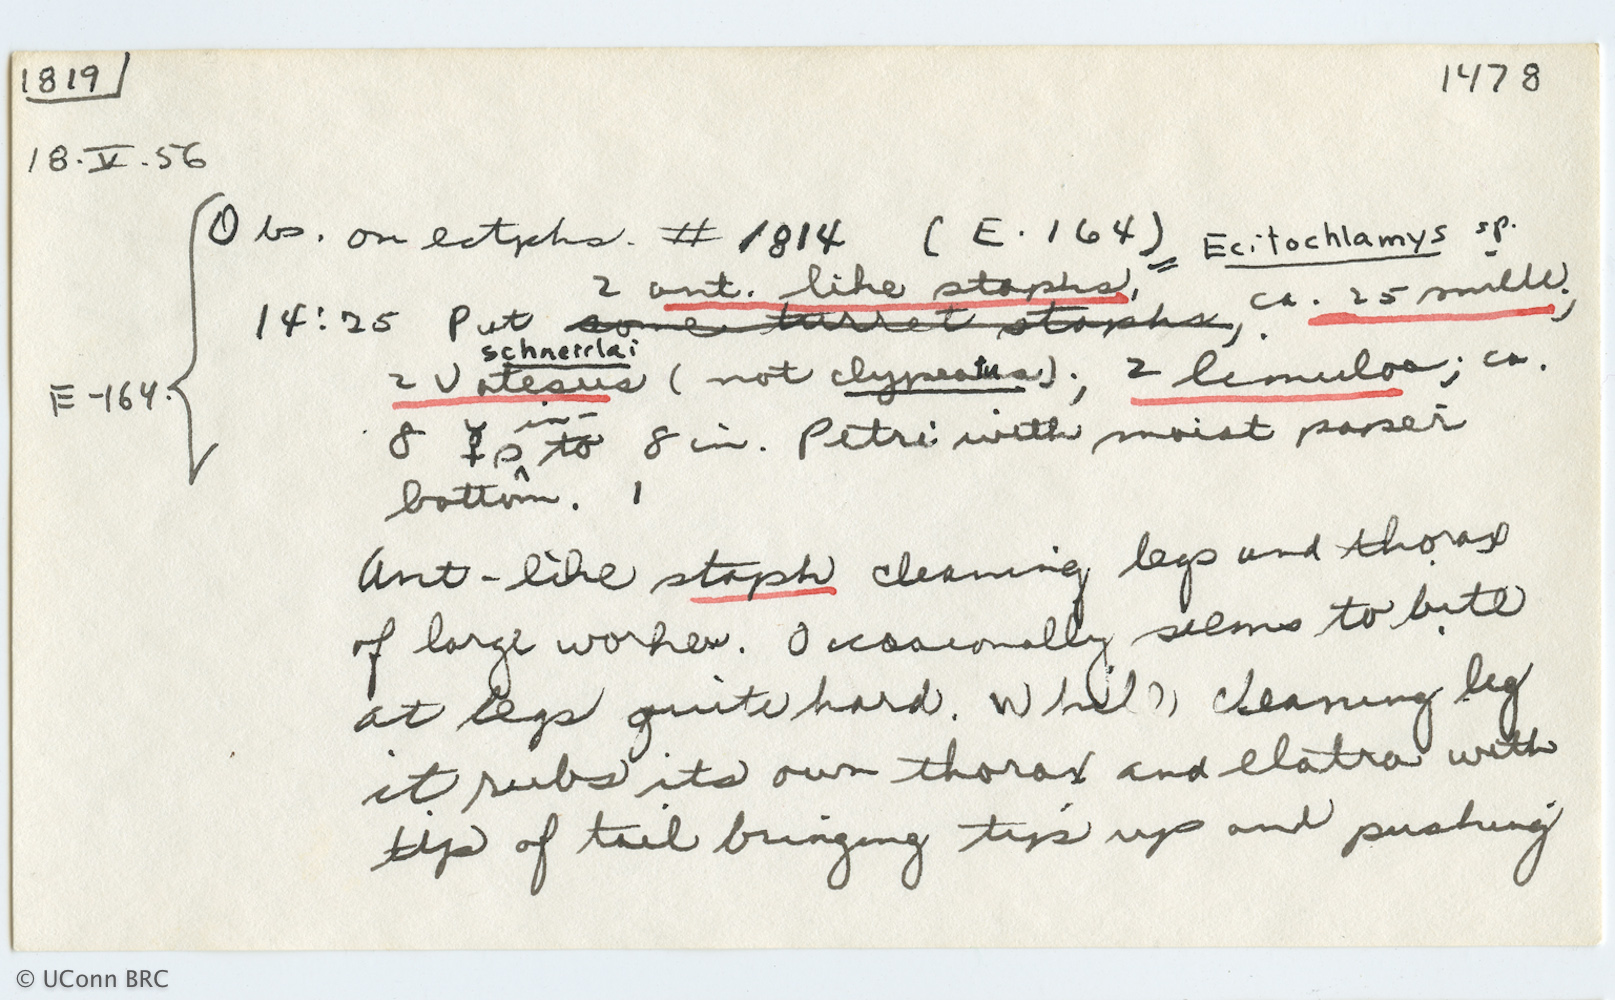 1819 1478
18.V.56
Obs. on ectphs. # 1814 (E.164) = Ecitochlamys sp.
2 ant. like staphs, ca. 25 small;
14:25 Put some turret staphs,
schneirlai
E-164. 2 Vatesus (not clypeatus); 2 limuloa; ca.
in
8 ☿s to 8 in. Petri with moist paper
bottom. 1
Ant-like staph cleaning legs and thorax
of large worker. Occasionally seems to bite
at legs quite hard. While cleaning leg
it rubs its own thorax and elatra with
tip of tail bringing tip up and pushing
© UConn BRC